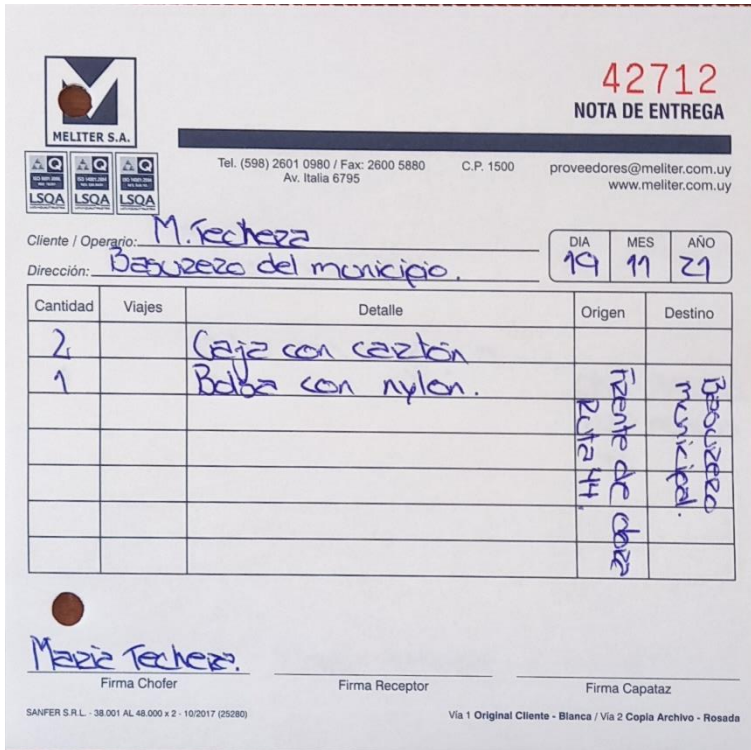 42712
NOTA DE ENTREGA
MELITER S.A.
LSQA LSQA LSQA
Tel. (598) 2601 0980 / Fax: 2600 5880
Av. Italia 6795
C.P. 1500
proveedores@meliter.com.uy
www.meliter.com.uy
Cliente / Operario: M. Techera
Dirección: Basurero del municipio.
DIA MES AÑO
19 11 21
Cantidad Viajes Detalle Origen Destino
2 Caja con cartón
1 Bolsa con nylon.
Frente de obra
Ruta 44.
Basurero
municipal.
Maria Techera.
Firma Chofer
Firma Receptor
Firma Capataz
SANFER S.R.L. - 38.001 AL 48.000 x 2 - 10/2017 (25280)
Vía 1 Original Cliente - Blanca / Vía 2 Copia Archivo - Rosada